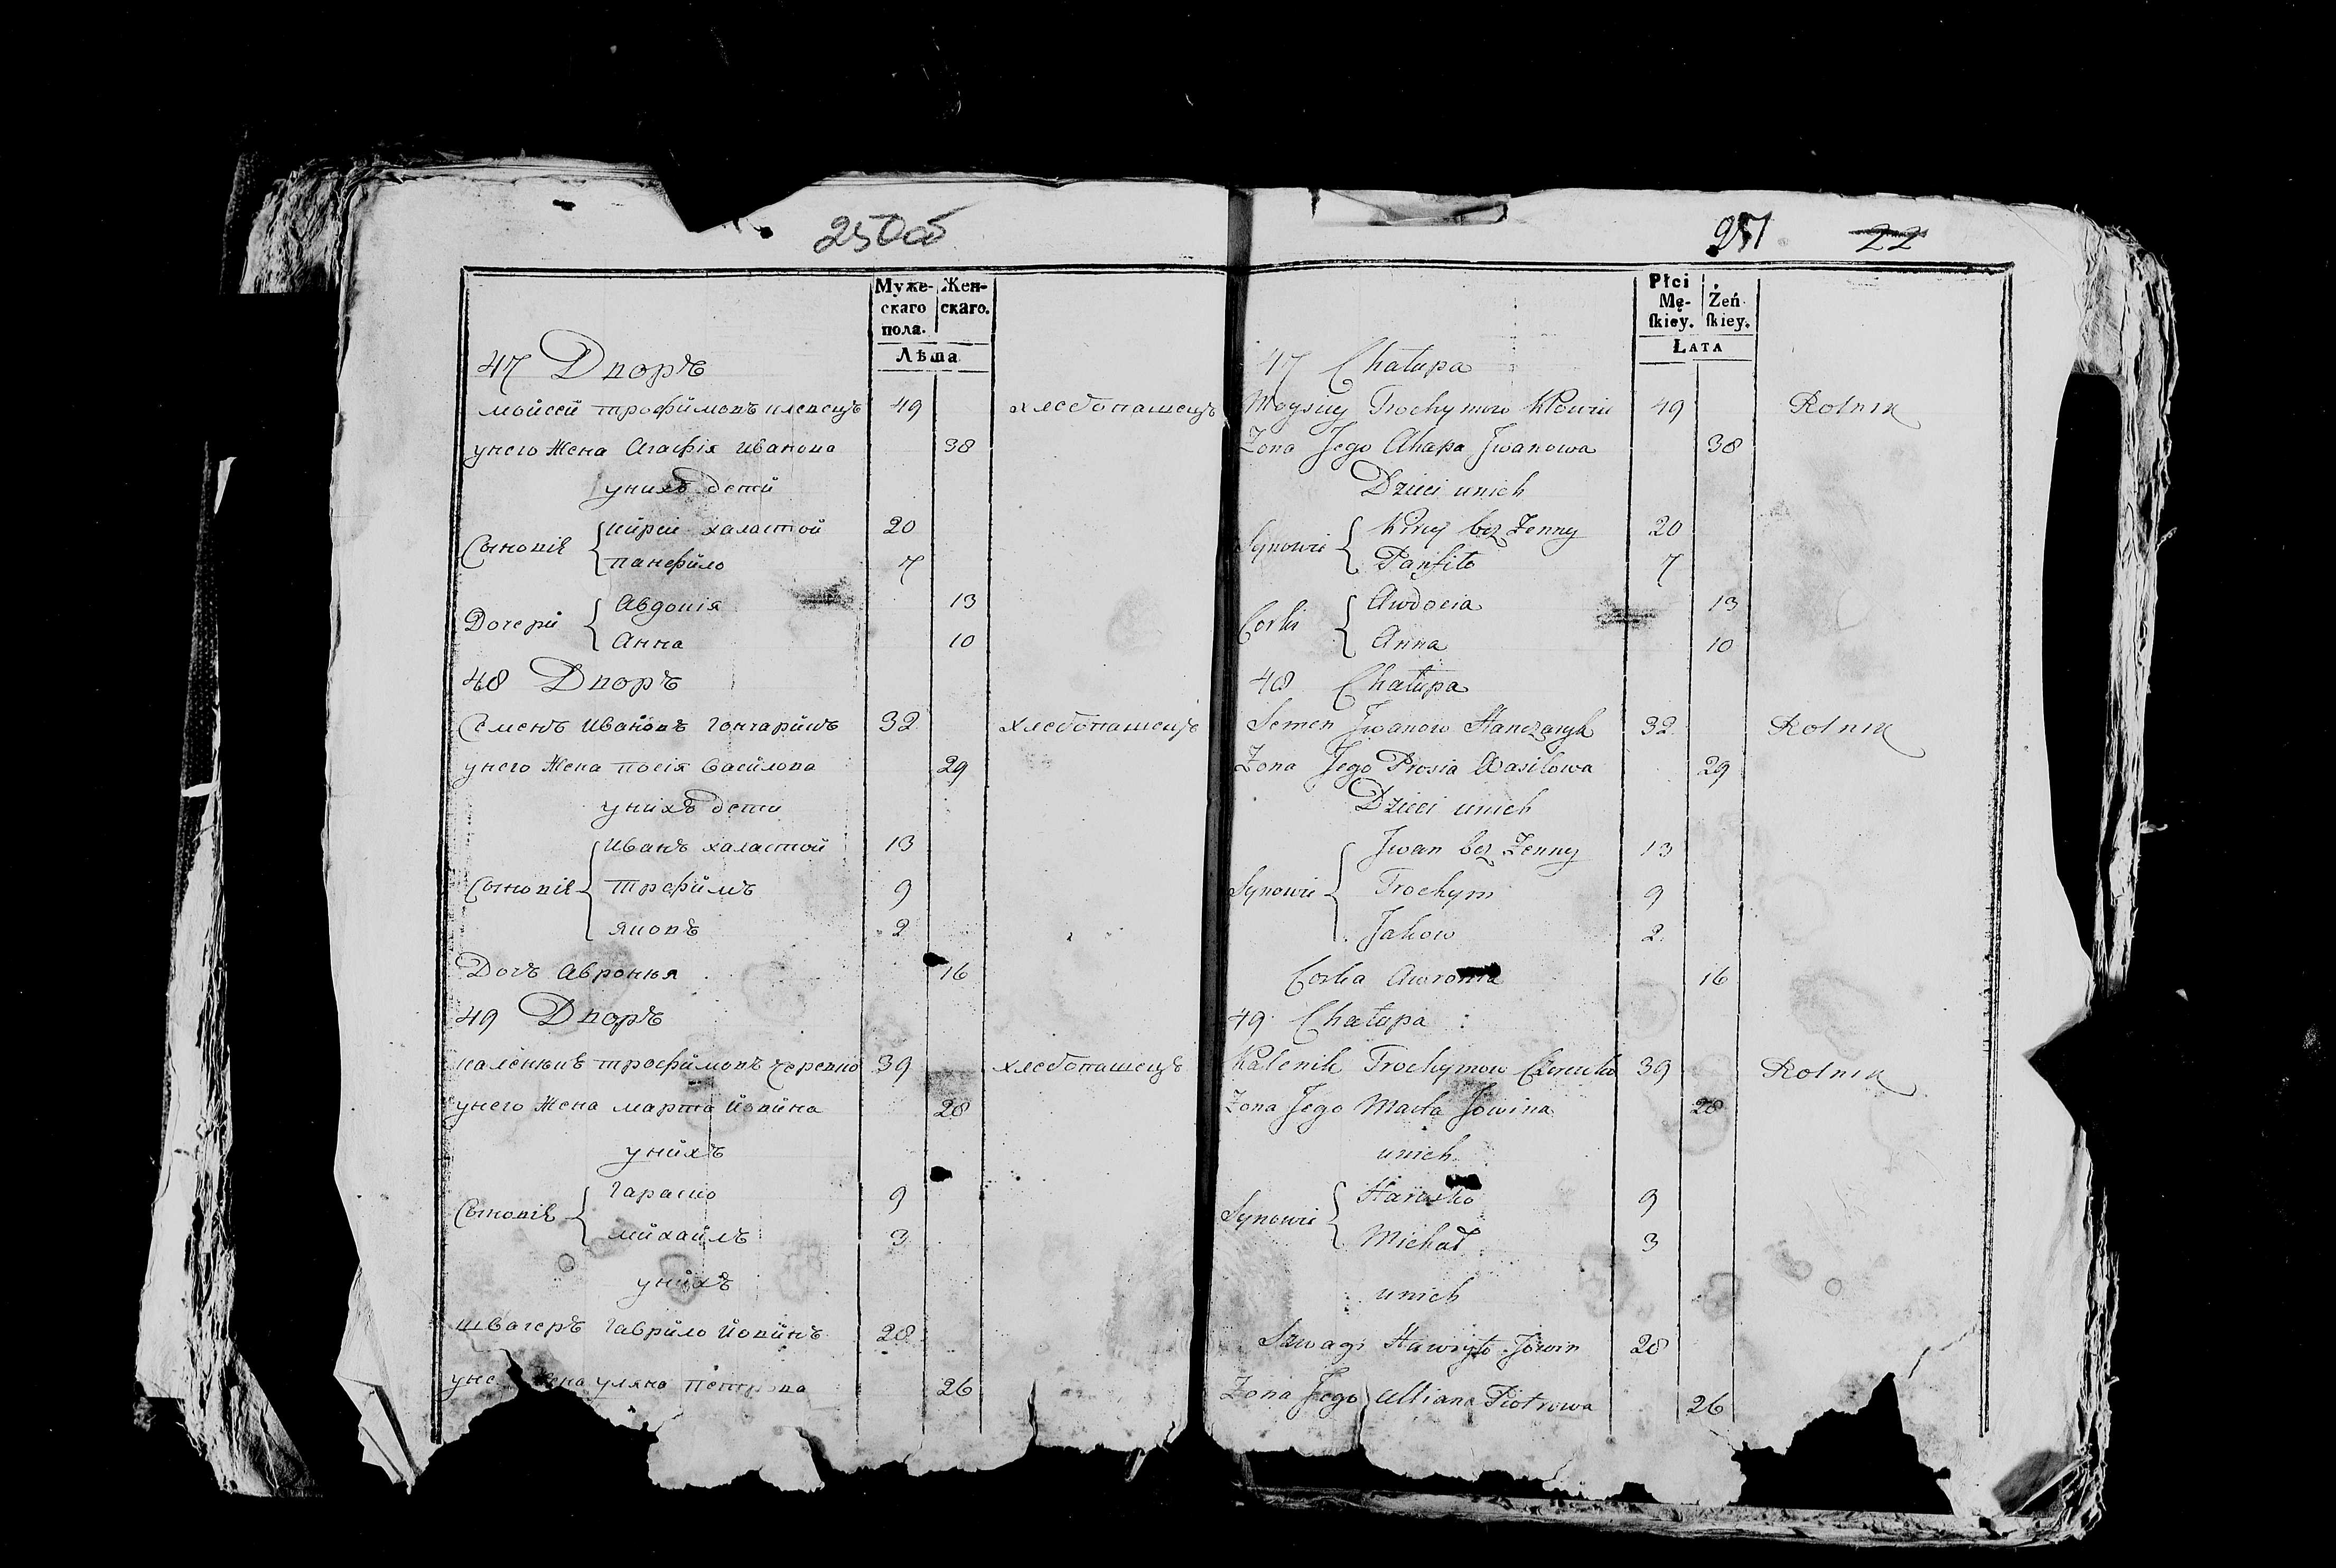 250об
Муже-
скаго
пола.
Жен-
скаго.
Лѣта
47 Дворъ
мойсей трофимовъ клевецъ 49 хлебопашецъ
унего жена Агафія иванова 38
унихъ дети
Сыновіѣ
кирей халастой 20
панфило 7
Дочери
Авдотія 13
Анна 10
48 Дворъ
Семенъ Ивановъ Гончарикъ 32 хлебопашецъ
унего жена Василова 29
унихъ дети
Сыновіѣ
Иванъ халастой 13
трофимъ 9
яковъ 2
Дочъ Авронья 16
49 Дворъ
каленикъ трофимовъ 39 хлебопашецъ
унего жена марта Йовина 28
унихъ
Сыновіѣ
Гараско 9
михаилъ 3
унихъ
швагеръ Гаврило Йовинъ 28
уляна 26
251 22
Płci
Mę-
ſkiey.
Żeń
ſkiey.
Lata
47 Chałupa
Moysiey Trochymow 49 Rolnik
Zona Jego Ahapa Jwanowa 38
Dzieci unich
Synowie
Kirey bez Zenny 20
Panfiło 7
Corki
Awdocia 13
Anna 10
48 Chałupa
Semen Jwanow Hanczaryk 32 Rolnik
Zona Jego Prosia Wasilowa 29
Dzieci unich
Synowie
Jwan bez Zenny 13
Trochym 9
Jakow 2
Corka Awronia 16
49 Chałupa
Kalenik Trochymow 39 Rolnik
Zona Jego Marta Jowina 28
unich
Synowie
Harasko 9
Michał 3
unich
Szwagr Hawryło Jowin 28
Zona Jego Ulliana Piotrowa 26